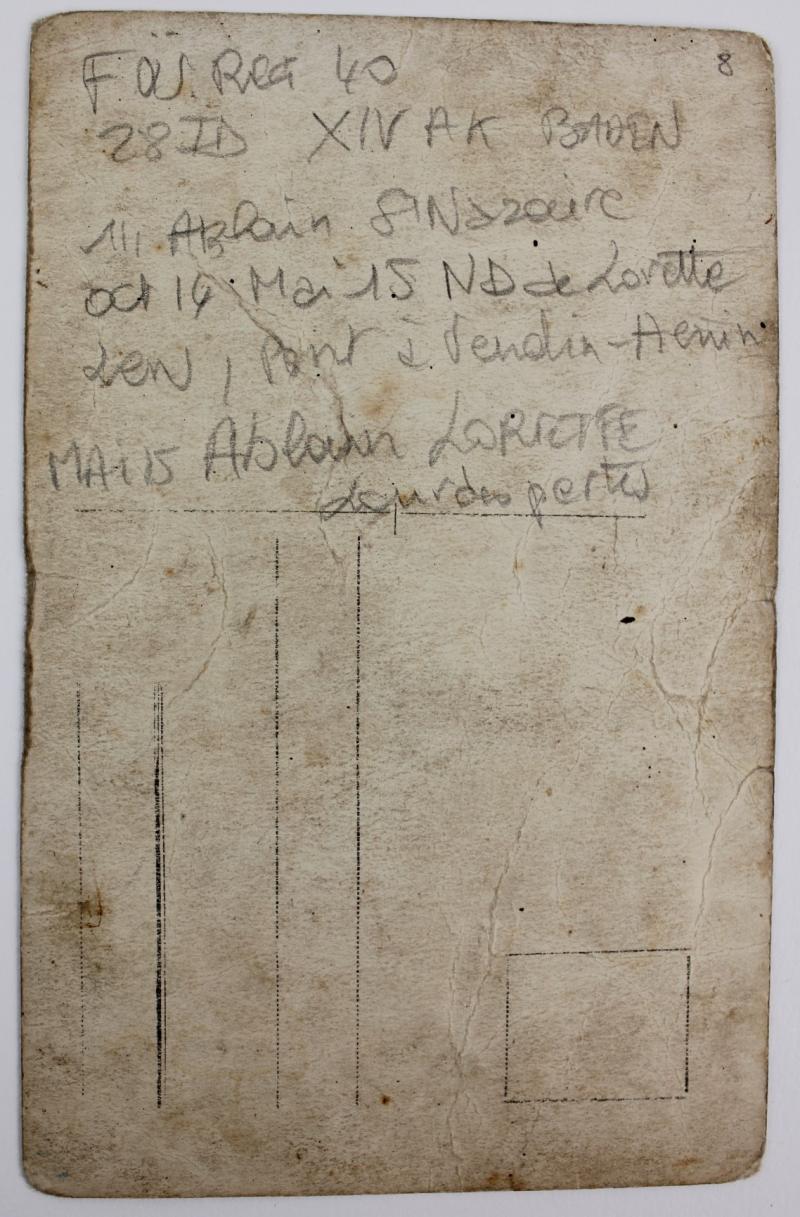 8
FÜS REG 40
28 ID XIV AK BADEN
111 Ablain St Nazaire
oct 14 Mai 15 ND de Lorette
Lens, Pont à Vendin-Henin
MAI 15 Ablain LORETTE
Lourdes pertes